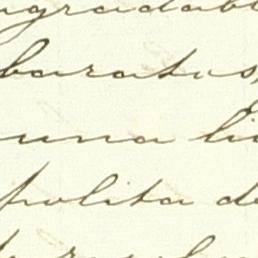 agradabl
baratas,
una li
polita de